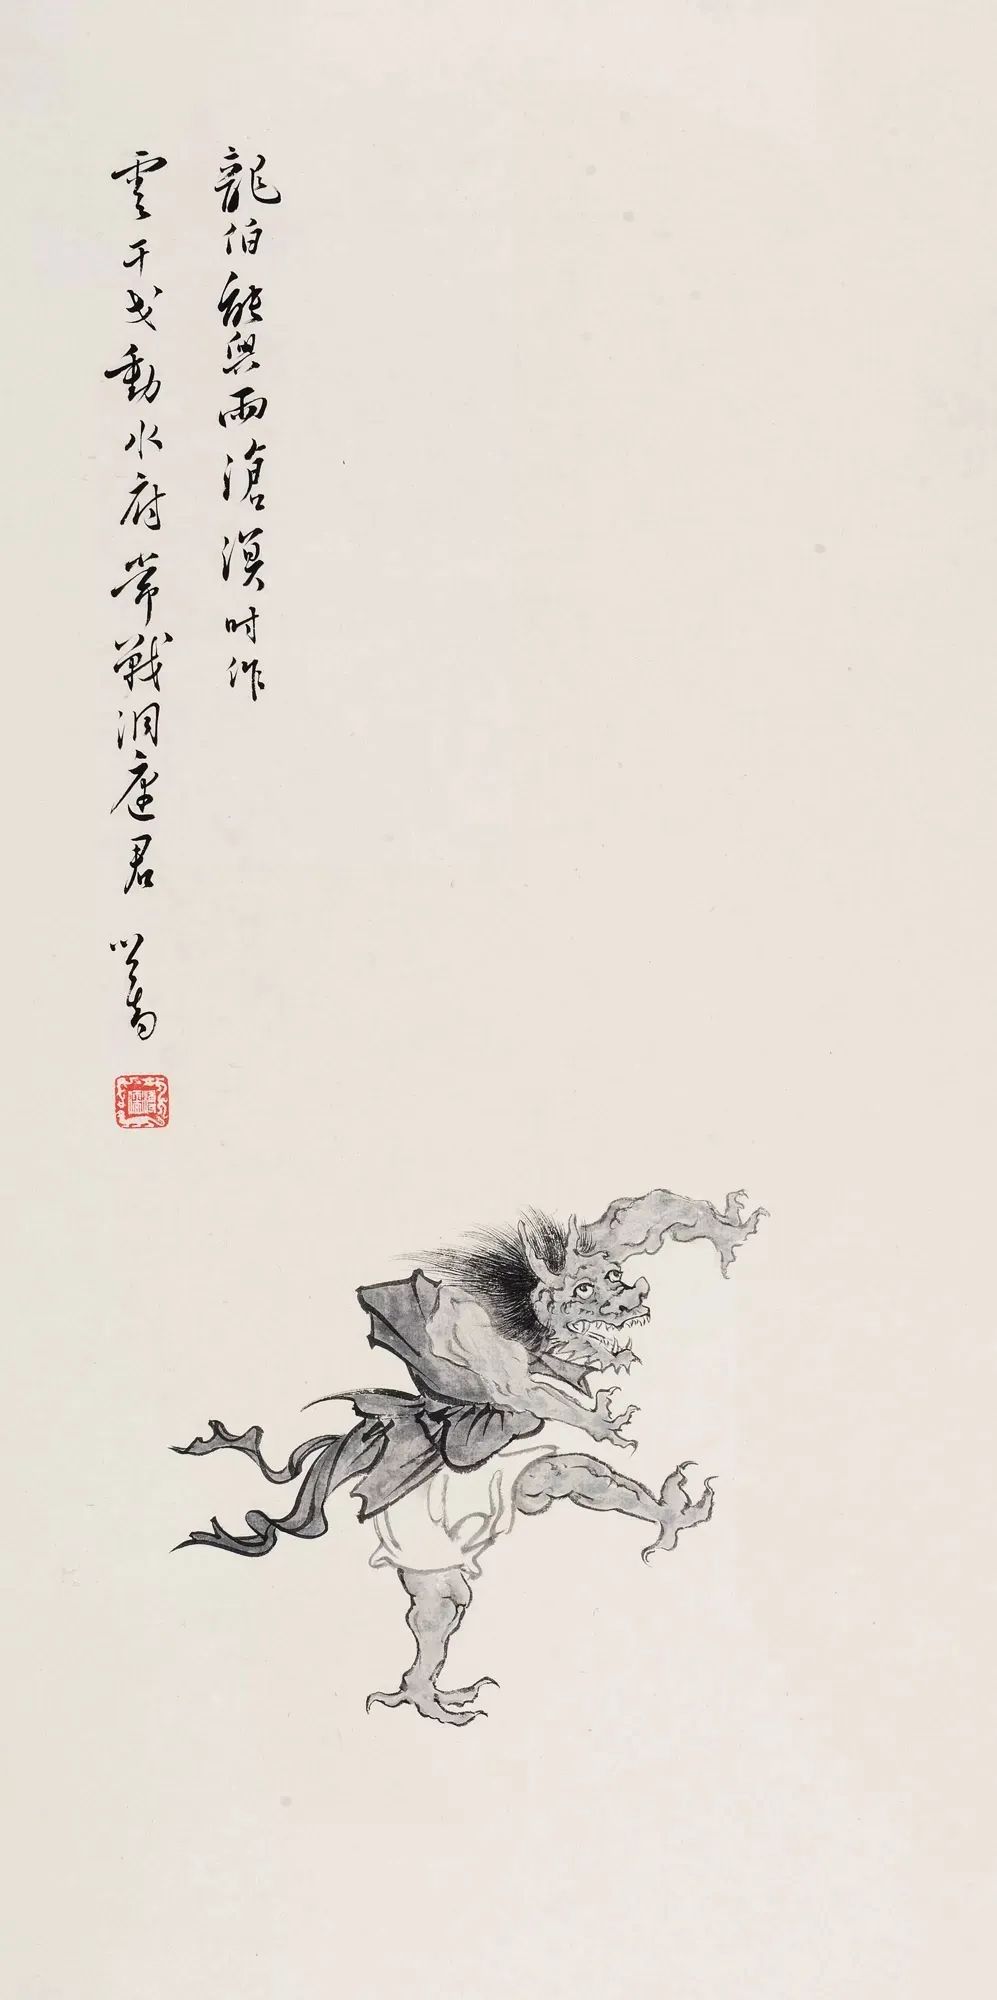 龍伯能興雨滄溟時作
雲干戈動水府常戰洞庭君 心畬